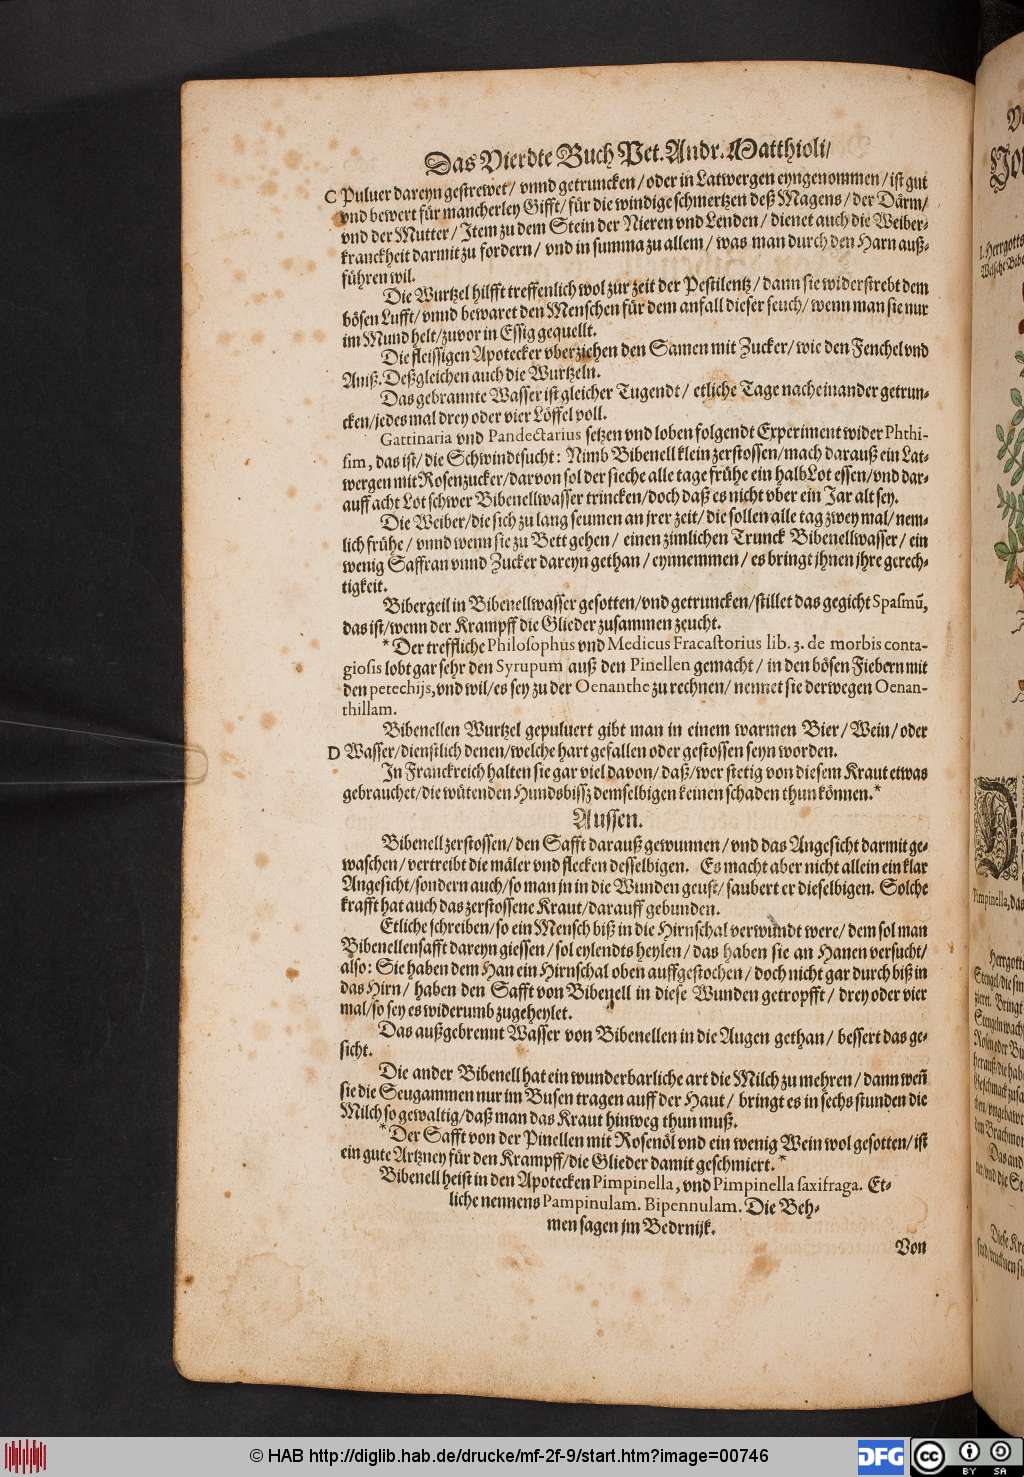 Das Vierdte Buch Pet. Andr. Matthioli/
C Puluer dareyn gestrewet/ vnnd getruncken/ oder in Latwergen eyngenommen/ ist gut
vnd bewert für mancherley Gifft/ für die windige schmertzen deß Magens/ der Därm/
vnd der Mutter/ Item zu dem Stein der Nieren vnd Lenden/ dienet auch die Weiber-
kranckheit darmit zu fordern/ vnd in summa zu allem/ was man durch den Harn auß-
führen wil.
Die Wurtzel hilfft treffenlich wol zur zeit der Pestilentz/ dann sie widerstrebt dem
bösen Lufft/ vnnd bewaret den Menschen für dem anfall dieser seuch/ wenn man sie nur
im Mund helt/ zuvor in Essig gequellt.
Die fleissigen Apotecker vberziehen den Samen mit Zucker/ wie den Fenchel vnd
Aniß. Deßgleichen auch die Wurtzeln.
Das gebrannte Wasser ist gleicher Tugendt/ etliche Tage nacheinander getrun-
cken/ jedes mal drey oder vier Löffel voll.
Gattinaria vnd Pandectarius setzen vnd loben folgendt Experiment wider Phthi-
sim, das ist/ die Schwindtsucht: Nimb Bibenell klein zerstossen/ mach darauß ein Lat-
wergen mit Rosenzucker/ darvon sol der sieche alle tage frühe ein halb Lot essen/ vnd dar-
auff acht Lot schwer Bibenellwasser trincken/ doch daß es nicht vber ein Jar alt sey.
Die Weiber/ die sich zu lang seumen an jrer zeit/ die sollen alle tag zwey mal/ nem-
lich frühe/ vnnd wenn sie zu Bett gehen/ einen zimlichen Trunck Bibenellwasser/ ein
wenig Saffran vnnd Zucker dareyn gethan/ eynnemmen/ es bringt jhnen jhre gerech-
tigkeit.
Bibergeil in Bibenellwasser gesotten/ vnd getruncken/ stillet das gegicht Spasmū,
das ist/ wenn der Krampff die Glieder zusammen zeucht.
* Der treffliche Philosophus vnd Medicus Fracastorius lib. 3. de morbis conta-
giosis lobt gar sehr den Syrupum auß den Pinellen gemacht/ in den bösen Fiebern mit
den petechijs, vnd wil/ es sey zu der Oenanthe zu rechnen/ nennet sie derwegen Oenan-
thillam.
Bibenellen Wurtzel gepuluert gibt man in einem warmen Bier/ Wein/ oder
D Wasser/ dienstlich denen/ welche hart gefallen oder gestossen seyn worden.
In Franckreich halten sie gar viel davon/ daß/ wer stetig von diesem Kraut etwas
gebrauchet/ die wütenden Hundsbissz demselbigen keinen schaden thun können.*
Aussen.
Bibenell zerstossen/ den Safft darauß gewunnen/ vnd das Angesicht darmit ge-
waschen/ vertreibt die mäler vnd flecken desselbigen. Es macht aber nicht allein ein klar
Angesicht/ sondern auch/ so man jn in die Wunden geust/ saubert er dieselbigen. Solche
krafft hat auch das zerstossene Kraut/ darauff gebunden.
Etliche schreiben/ so ein Mensch biß in die Hirnschal verwundt were/ dem sol man
Bibenellensafft dareyn giessen/ sol eylendts heylen/ das haben sie an Hanen versucht/
also: Sie haben dem Han ein Hirnschal oben auffgestochen/ doch nicht gar durch biß in
das Hirn/ haben den Safft von Bibenell in diese Wunden getropfft/ drey oder vier
mal/ so sey es widerumb zugeheylet.
Das außgebrennt Wasser von Bibenellen in die Augen gethan/ bessert das ge-
sicht.
Die ander Bibenell hat ein wunderbarliche art die Milch zu mehren/ dann wen̄
sie die Seugammen nur im Busen tragen auff der Haut/ bringt es in sechs stunden die
Milch so gewaltig/ daß man das Kraut hinweg thun muß.
* Der Safft von der Pinellen mit Rosenöl vnd ein wenig Wein wol gesotten/ ist
ein gute Artzney für den Krampff/ die Glieder damit geschmiert. *
Bibenell heist in den Apotecken Pimpinella, vnd Pimpinella saxifraga. Et-
liche nennens Pampinulam. Bipennulam. Die Beh-
men sagen jm Bedrnijk.
Von
© HAB http://diglib.hab.de/drucke/mf-2f-9/start.htm?image=00746
DFG
cc BY SA